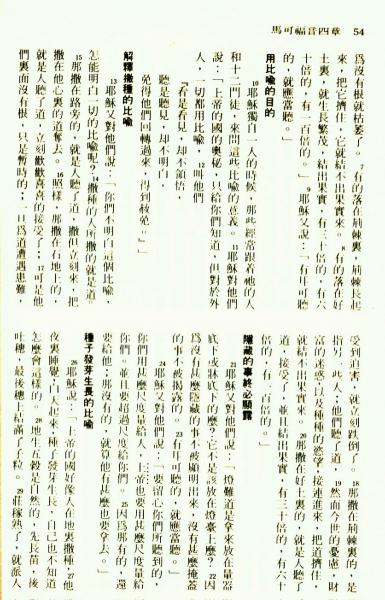 馬可福音四章　54
為沒有根就枯萎了。7有的落在荊棘裏，荊棘長起
來，把它擠住，它就結不出果實來。8有的落在好
土裏，就生長繁茂，結出果實，有三十倍的，有六
十倍的，有一百倍的。」9耶穌又說：「有耳可聽
的，就應當聽。」
用比喻的目的
10耶穌獨自一人的時候，那些經常跟着祂的人
和十二門徒，來問這些比喻的意義。11耶穌對他們
說：「上帝的國的奧秘，只給你們知道，但對於外
人，一切都用比喻，12叫他們
『看是看見，却不領悟，
聽是聽見，却不明白，
免得他們回轉過來，得到赦免。』」
解釋撒種的比喻
13耶穌又對他們說：「你們不明白這個比喻，
怎能明白一切的比喻呢？14撒種的人所撒的就是道。
15那撒在路旁的，就是人聽了道，撒但立刻來，把
撒在他心裏的道奪去。16照樣，那撒在石地上的，
就是人聽了道，立刻歡歡喜喜的接受了；17可是他
們裏面沒有根，只是暫時的；一旦為道遭遇患難，
受到迫害，就立刻跌倒了。18那撒在荊棘裏的，是
指另一些人；他們聽了道，19然而今世的憂慮，財
富的迷惑，以及種種的慾望，接連進來，把道擠住，
就結不出果實來。20那撒在好土裏的，就是人聽了
道，接受了，並且結出果實，有三十倍的，有六十
倍的，有一百倍的。」
隱藏的事終必顯露
21耶穌又對他們說：「燈難道是拿來放在量器
底下或牀底下的麼？它不是該放在燈臺上麼？22因
為沒有甚麼隱藏的事不被顯明出來，沒有甚麼掩蓋
的事不被揭露的。23有耳可聽的，就應當聽。」
24耶穌又對他們說：「要留心你們所聽到的，
你們用甚麼尺度量給人，上帝也要用甚麼尺度量給
你們。並且要超過尺度給你們。25因為那有的，還
要給他；那沒有的，就算他有甚麼也要拿去。」
種子發芽生長的比喻
26耶穌說：「上帝的國好像人在地裏撒種，27他
夜裏睡覺，白天起來，種子發芽生長，自己也不知道
怎麼會這樣的。28地生五穀是自然的，先長苗，後
吐穗，最後穗上結滿了子粒。29莊稼熟了，就派人